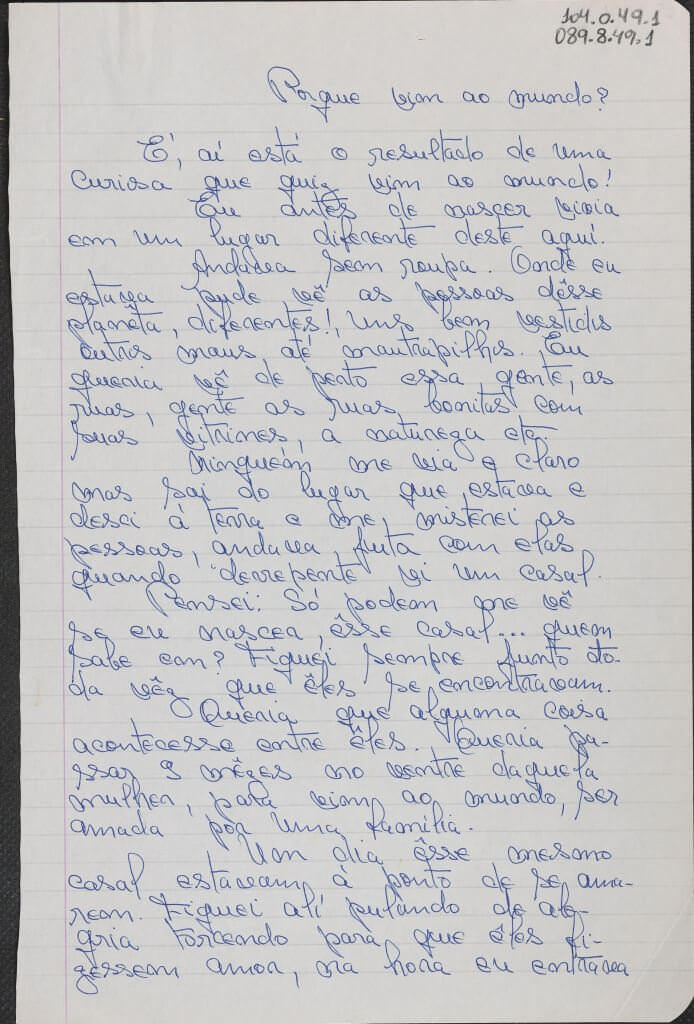 104.0.49.1
089.8.49.1
Porque vim ao mundo?
É, aí está o resultado de uma
curiosa que quiz vim ao mundo!
Eu antes de nascer vivia
em um lugar diferente deste aqui.
Andava sem roupa. Onde eu
estava pude vê as pessoas dêsse
planêta, diferentes!, uns bem vestidos
outros maus, até mautrapilhos. Eu
queria vê de perto essa gente, as
ruas, gente as ruas bonitas com
suas vitrines, a natureza etc.
Ninguém me via é claro
mas saí do lugar que estava e
desci à terra e me misterei as
pessoas, andava junta com elas
quando derrepente vi um casal.
Pensei: Só podem me vê
se eu nascer, êsse casal... quem
sabe em? Fiquei sempre junto to-
da vêz que êles se encontravam.
Queria que alguma coisa
acontecesse entre êles. Queria pa-
ssar 9 mêzes no ventre daquela
mulher, para vim ao mundo, ser
amada por uma família.
Um dia êsse mesmo
casal estavam à ponto de se ama-
rem. Fiquei alí pulando de ale-
gria torcendo para que êles fi-
zessem amor, na hora eu entrava